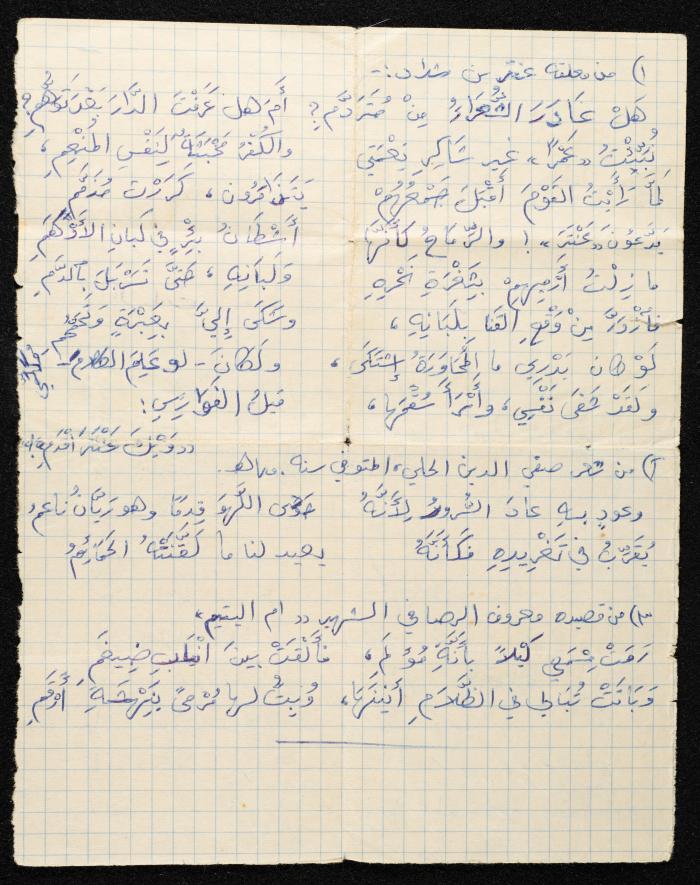 ١) من معلقة عنتر بن شداد :-
هَلْ غَادَرَ الشُّعَرَاءُ مِنْ مُتَرَدَّمِ ؟ أَم هل عَرَفْتَ الدَّارَ بَعْدَ تَوَهُّمِ ؟
نُبِّئْتُ « عَمْرًا » غير شَاكِرِ نِعْمَتِي والكُفْرُ مَخْبَثَةٌ لِنَفْسِ المُنْعِمِ ،
لَمَّا رَأَيْتُ القَوْمَ أَقْبَلَ جَمْعُهُمْ يَتَذَامَرُون ، كَرَرْتُ غَيْرَ مُذَمَّمِ
يَدْعُونَ « عَنْتَرَ » ! والرِّمَاحُ كَأَنَّهَا أَشْطَانُ بِئْرٍ في لَبَانِ الأَدْهَمِ
ما زِلْتُ أَرْمِيهِمْ بِثَغْرَةِ نَحْرِهِ وَلَبَانِهِ ، حَتَّى تَسْرْبَلَ بالدَّمِ
فازْوَرَّ مِنْ وَقْعِ القَنا بِلَبَانِهِ ، وشَكَى إِليَّ بِعَبْرَةٍ وَتَحَمْحُمِ
لَوْ كان يَدْرِي ما المُحَاوَرَةُ إِشتَكَى ، ولَكَانَ - لو عَلِمَ الكلامَ - مُكَلِّمِي
ولَقَدْ شَفَى نَفْسِي ، وأَبْرَأَ سُقْمَهَا ، قيلُ الفَوَارِسِ :
« وَيْكَ عَنْتَرَ أَقْدِمِ » !
٢) من شعر صفي الدين الحلي ، المتوفي سنة ٧٥٠ هـ .
وعودٍ بهِ عادَ السُّرورُ لِأَنَّهُ حوَى اللَّهوَ قِدمًا وهو رَيَّانُ ناعم ،
يُغَرِّبُ في تَغْرِيدِهِ فَكَأَنَّهُ يعيد لنا ما لَقَّنَتْهُ الحَمَائِمُ
٣) من قصيدة معروف الرصافي الشهير « ام اليتيم »
رَمَتْ مِسْمَعِي لَيْلاً بِأَنَّةِ مُؤْلَمِ ، فأَلْقَتْ بينَ أنْيَابِ ضيغمِ
وَبَاتَتْ تُبَالِي في الظَّلَامِ أَنِينَهَا ، وبتُّ لها مُرْمىً بِنَهْشَةِ أَرْقَمِ